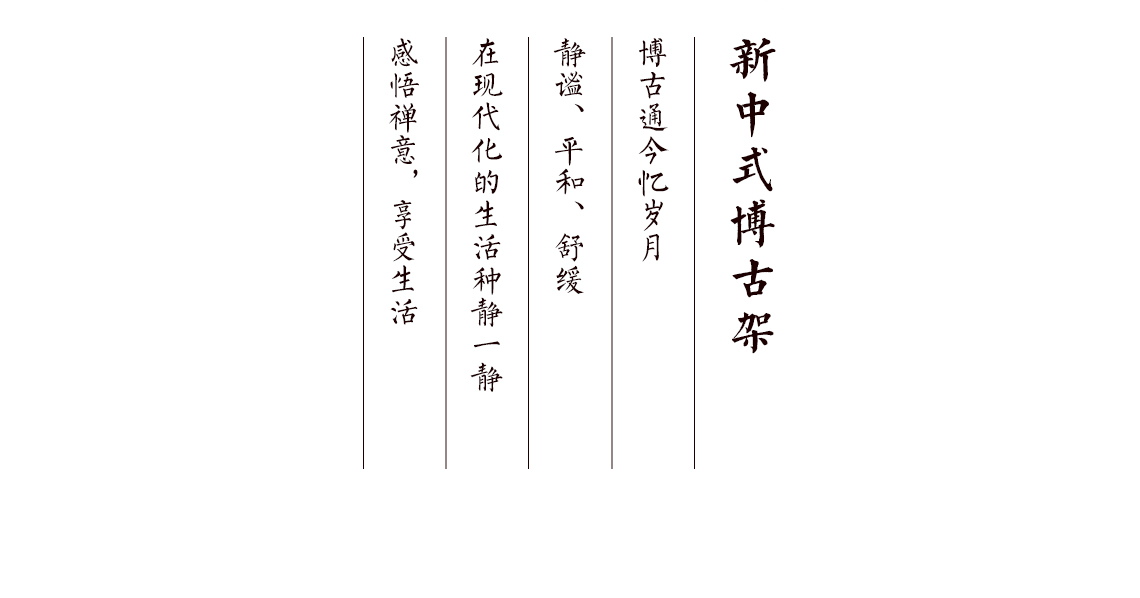 新中式博古架
博古通今忆岁月
静谧、平和、舒缓
在现代化的生活种静一静
感悟禅意，享受生活